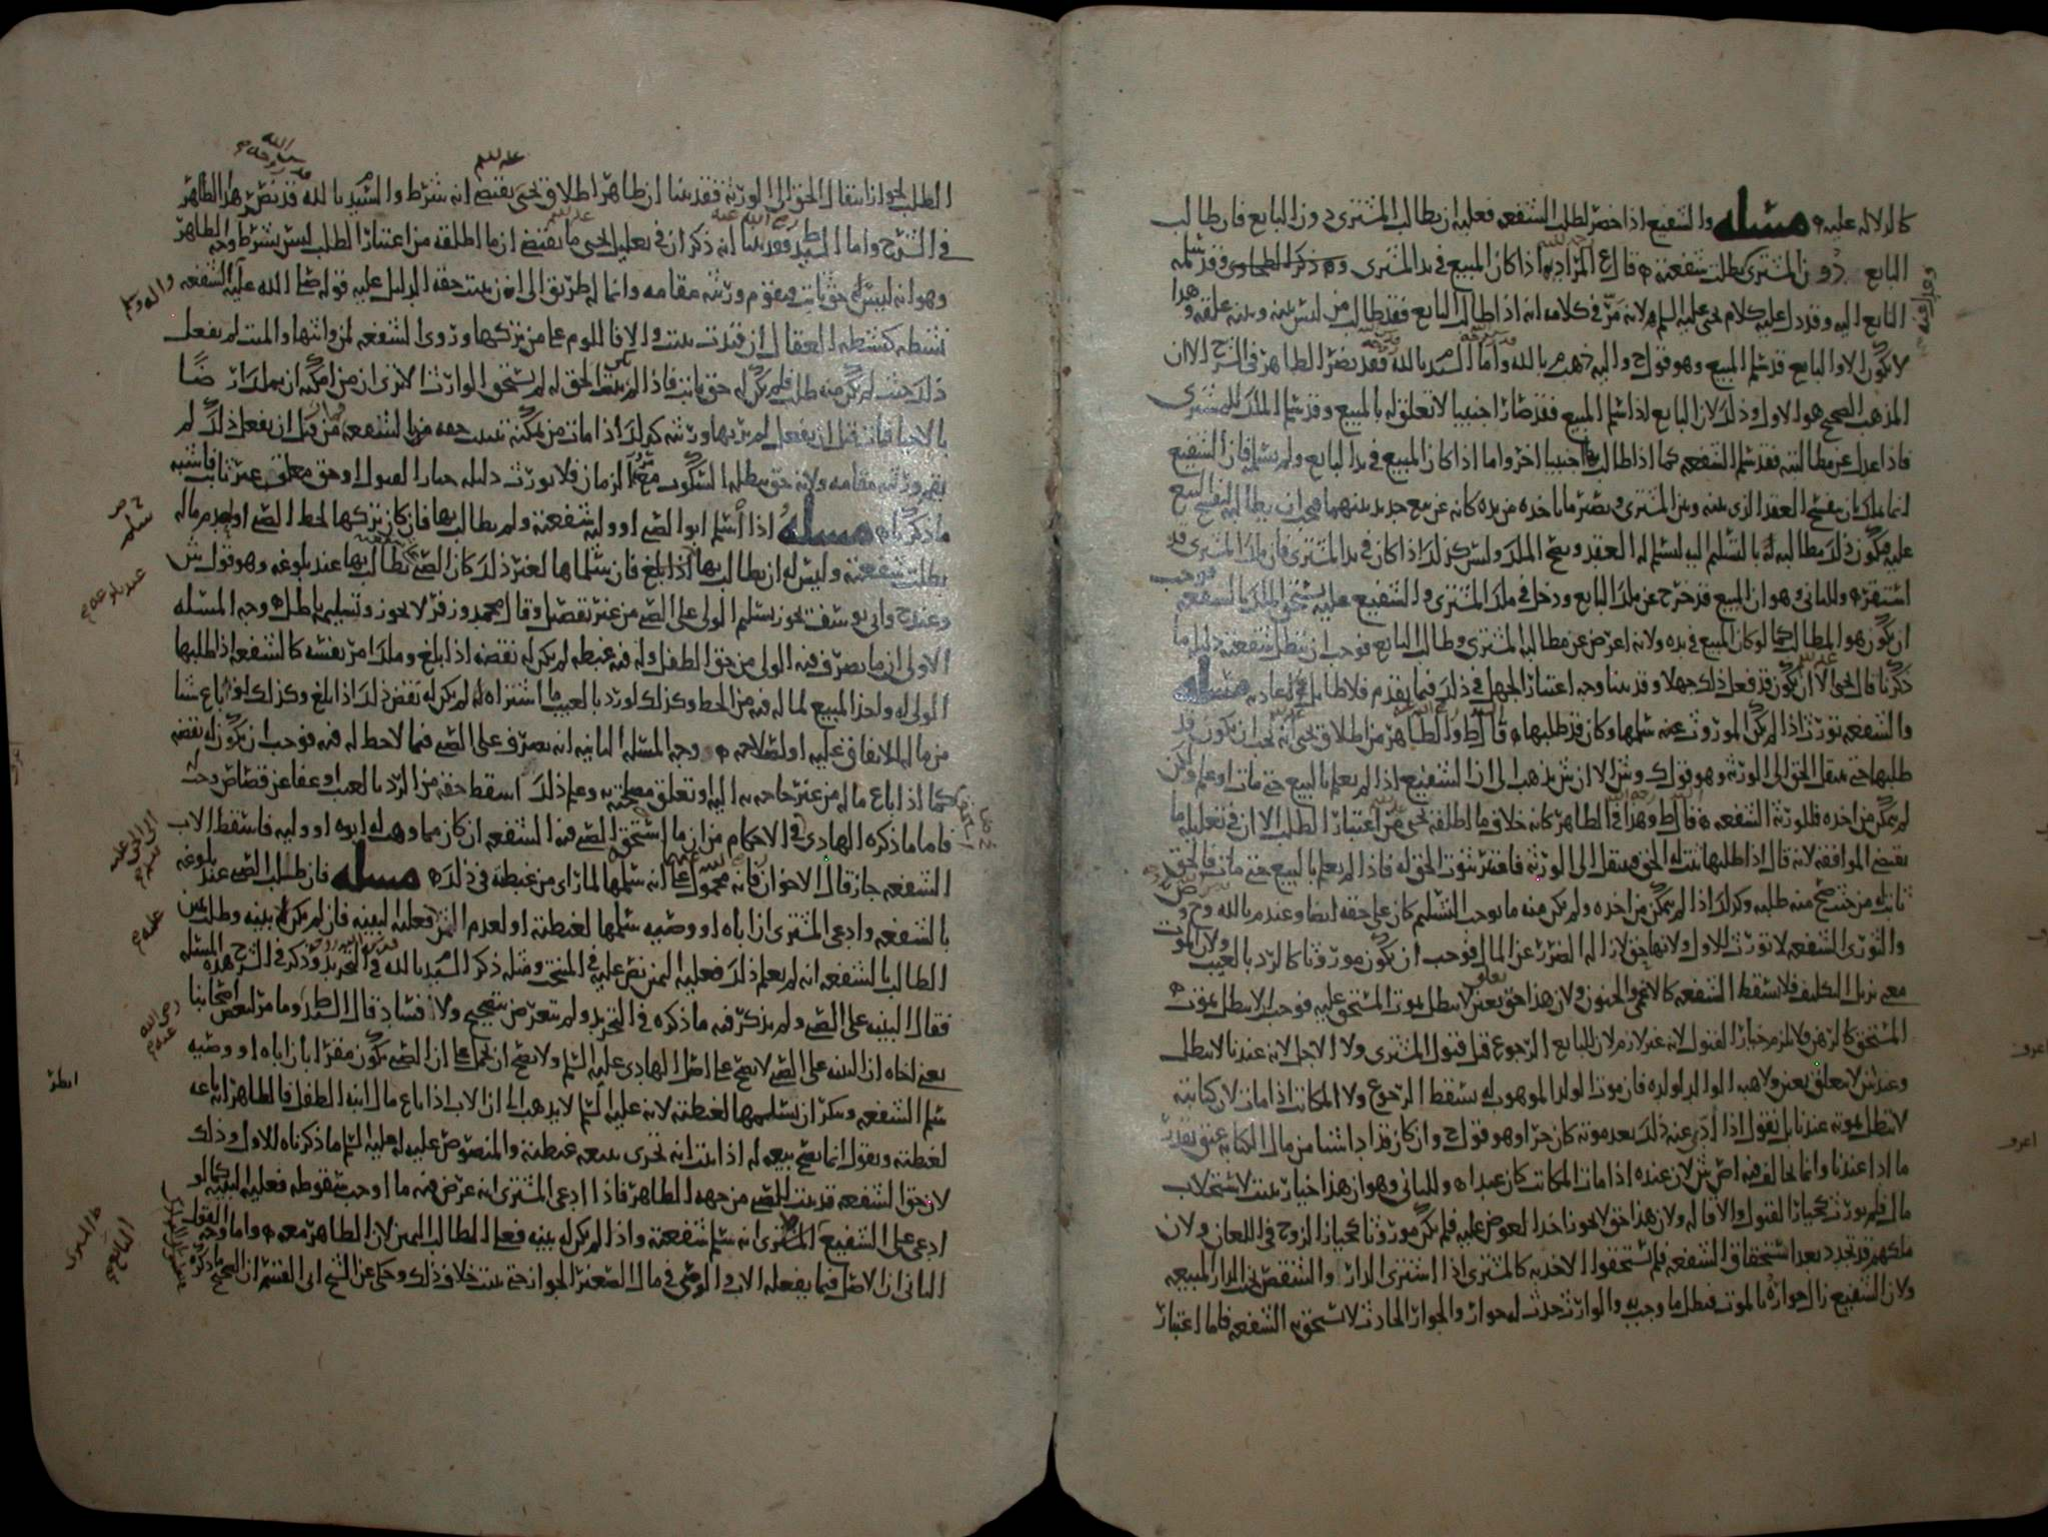 كالدلاله عليه مسئله والشفيع اذا حضر لطلب الشفعه فعليه ان يطالب المشتري دون البايع فان طالب
البايع دون المشتري بطلت شفعته قال ع المراد به اذا كان المبيع في يد المشتري وقد سلمه
البايع اليه وقد دل عليه كلام يحيى عليه السلم لانه مر في كلامه انه اذا طالب البايع فقد طالب من ليس بينه وبينه علقه وهذا
لا يكون الا والبايع قد سلم المبيع وهو قول ح واليه ذهب م بالله واما السيد ط بالله فقد نص الطاهر في الشرح الا ان
المذهب الصحيح هو الاول وذلك لان البايع اذا سلم المبيع فقد صار اجنبيا لا تعلق له بالمبيع وقد سلم الملك للمشتري
فاذا عدل عن مطالبته فقد سلم الشفعه كما اذا طالب بها اجنبيا اخر واما اذا كان المبيع في يد البايع ولم يسلمه فان الشفيع
انما ملك بان يفسخ العقد الذي بينه وبين المشتري ويصير ما ياخذه من يده كانه عن بيع جديد بينهما فيجب ان يطالبه بفسخ البيع
عليه فيكون في ذلك مطالبه له بالتسليم اليه لتسلم له العقد ويصح الملك وليس كذلك اذا كان في يد المشتري فان ملك المشتري قد
استقر وللثاني وهو ان المبيع قد خرج عن ملك البايع ودخل في ملك المشتري والشفيع عليه يستحق الملك بالشفعه فوجب
ان يكون هو المطالب كما لو كان المبيع في يده ولانه اعرض عن مطالبه المشتري وطالب البايع فوجب ان تبطل شفعته دليله ما
ذكرنا قال يحيى الا ان يكون قد فعل ذلك جهلا وقد بينا وجه اعتبار الجهل في ذلك فيما تقدم فلا طايل في اعاده مسئله
والشفعه تورث اذا لم يكن الموروث عنه سلمها وكان قد طلبها قال ط والظاهر من اطلاق يحيى انه يجب ان يكون قد
طلبها حتى ينتقل الحق الى الورثه وهو قول ك وش الا ان ش يذهب الى ان الشفيع اذا لم يعلم بالبيع حتى مات او علم ولكن
لم يتمكن من اخذه فللورثه الشفعه قال ط وهذا في الظاهر كانه خلاف ما اطلقه يحيى من اعتبار الطلب الا ان في تعليله ما
يقتضي الموافقه لانه قال اذا طلبها ثبت له الحق فينتقل الى الورثه فاعتبر ثبوت الحق له فاذا لم يعلم بالبيع حتى مات فالحق
ثابت له من حيث صح منه طلبه وكذلك اذا لم يتمكن من اخذه ولم يكن منه ما يوجب التسليم كان على حقه ايضا وعند م بالله وح وص
والثوري الشفعه لا تورث للاول ولانها حق لازاله الضرر عن المال فوجب ان يكون موروثا كالرد بالعيب ولان الموت
معنى يزيل التكليف فلا يسقط الشفعه كالاغمى والجنون ولان هذا حق تعلق بعين لا يبطل بموت المستحق عليه فوجب ان لا يبطل بموت
المستحق كالرهن ولا يلزم خيار القبول لانه غير لازم لان للبايع الرجوع قبل قبول المشتري ولا الاجل لانه عندنا لا يبطل
وعند ش لا يتعلق بعين ولا هبه الوالد لولده فان موت الولد الموهوب له يسقط الرجوع ولا المكاتب اذا مات لان كتابته
لا تبطل بموته عندنا بل نقول اذا ادي عنه ذلك بعد موته كان حرا وهو قول ح وان كان قد ادا شيئا من مال الكتابه عتق بقدر
ما ادا عندنا وانما يخالف فيه اصل ش لان عنده اذا مات المكاتب كان عبدا وللثاني وهو ان هذا خيار يثبت لاستجلاب
مال فلم يورث كخيار القبول والاقاله ولان هذا حق لا يجوز اخذ العوض عليه فلم يكن موروثا كخيار الزوج في اللعان ولان
ملكهم قد تجدد بعد استحقاق الشفعه فلم يستحقوا الاخذ به كالمشتري اذا اشترى الدار والشقص بجنب الدار المبيعه
ولان الشفيع زال جواره بالموت فبطل ما وجب به والوارث حدث له جوار والجوار الحادث لا يستحق به الشفعه فاما اعتبار
الطلب لجواز انتقال الحق الى الورثه فقد بينا ان ظاهر اطلاق يحيى يقتضي انه شرط والسيد م بالله قد نص هذا الظاهر
في الشرح واما السيد ط فقد بينا انه ذكر ان في تعليل يحيى ما يقتضي ان ما اطلقه من اعتبار الطلب ليس بشرط وجه الظاهر
وهو انه ليس له حق ثابت فيقوم ورثته مقامه وانما له طريق الى ان يثبت حقه الدليل عليه قوله صلى الله عليه واله وسلم الشفعه
نشطه كنشطه العقال ان قيدت ثبتت والا فاللوم على من تركها وروي الشفعه لمن واثبها والميت لم يفعل
ذلك حيث لم يكن منه طلب فلم يكن له حق ثابت فاذا لم يثبت الحق له لم يستحق الوارث الا ترى ان من امكنه ان يملك ارضا
بالاحيا فمات قبل ان يفعل لم يرثها ورثته كذلك اذا مات من يمكنه تثبيت حقه من الشفعه فمات قبل ان يفعل ذلك لم
يقم ورثته مقامه ولانه حق يبطله السكوت مع الزمان فلا يورث دليله خيار القبول او حق معلق غير ثابت فاشبه
ما ذكرنا مسئله اذا سلم ابو الصبي او وليه شفعته ولم يطالب بها فان كان تركها لحظ الصبي او لعدم ماله
بطلت شفعته وليس له ان يطالب بها اذا بلغ فان سلمها لغير ذلك كان للصبي ان يطالب بها عند بلوغه وهو قول ش
وعند ح وابي يوسف يجوز تسليم الولي على الصبي من غير تفصيل وقال محمد وزفر لا يجوز وتسليمه باطل وجه المسئله
الاولى ان ما يصرف فيه الولي من حق الطفل وله فيه غبطه لم يكن له نقضه اذا بلغ وملك امر نفسه كالشفعه اذا طلبها
الولي له واخذ المبيع لما له فيه من الحظ وكذلك لو رد بالعيب ما اشتراه له لم يكن له نقض ذلك اذا بلغ وكذلك لو باع شيا
من ماله للانفاق عليه او لصلاحه وجه المسئله الثانيه انه تصرف على الصبي فيما لا حظ له فيه فوجب ان يكون له نقضه
كما اذا باع ماله من غير حاجه به اليه وتعلق مصلحته به وعلى ذلك اسقط حقه من الرد بالعيب او عفا عن قصاص وجب
فاما ما ذكره الهادي في الاحكام من ان ما استحق الصبي فيه الشفعه ان كان مما وهب له ابوه او وليه فاسقط الاب
الشفعه جاز قال الاخوان فانه محمول على انه سلمها لما راى من غبطته في ذلك مسئله فان طلب الصبي عند بلوغه
بالشفعه وادعى المشتري ان اباه او وصيه سلمها لغبطته او لعدم الثمن فعليه البينه فان لم يكن له بينه وطلب يمين
الطالب بالشفعه انه لم يعلم ذلك فعليه اليمين نص عليه في المنتخب ومثله ذكر السيد م بالله في التجريد وذكر في الشرح هذه المسئله
فقال البينه على الصبي ولم يذكر فيه ما ذكره في التجريد ولم يتعرض بتصحيح ولا افساد قال السيد ط وما مر لبعض اصحابنا
يعني اخاه ان البينه على الصبي لا يصح على اصل الهادي عليه السلم ولا يصح ان يحمل على ان الصبي يكون مقرا بان اباه او وصيه
سلم الشفعه وينكر ان تسليمها لغبطته لانه عليه السلم لا يذهب الى ان الاب اذا باع مال ابنه الطفل فالظاهر انه باعه
لغبطته ويقول انما يصح بيعه له اذا ثبت انه تحرى ببيعه غبطته والمنصوص عليه له عليه السلم ما ذكرناه للاول وذلك
لان حق الشفعه قد ثبت للصبي من جهه الظاهر فاذا ادعى المشتري انه عرض فيه ما اوجب سقوطه فعليه البينه كما لو
ادعى على الشفيع المشتري انه سلم شفعته واذا لم يكن له بينه فعلى الطالب اليمين لان الظاهر معه واما وجه القول
الثاني ان الاصل فيما يفعله الاب والوصي في مال الصغير الجواز حتى يثبت خلاف ذلك وحكي عن الشيخ ابي القسم ان الصحيح ما ذكره